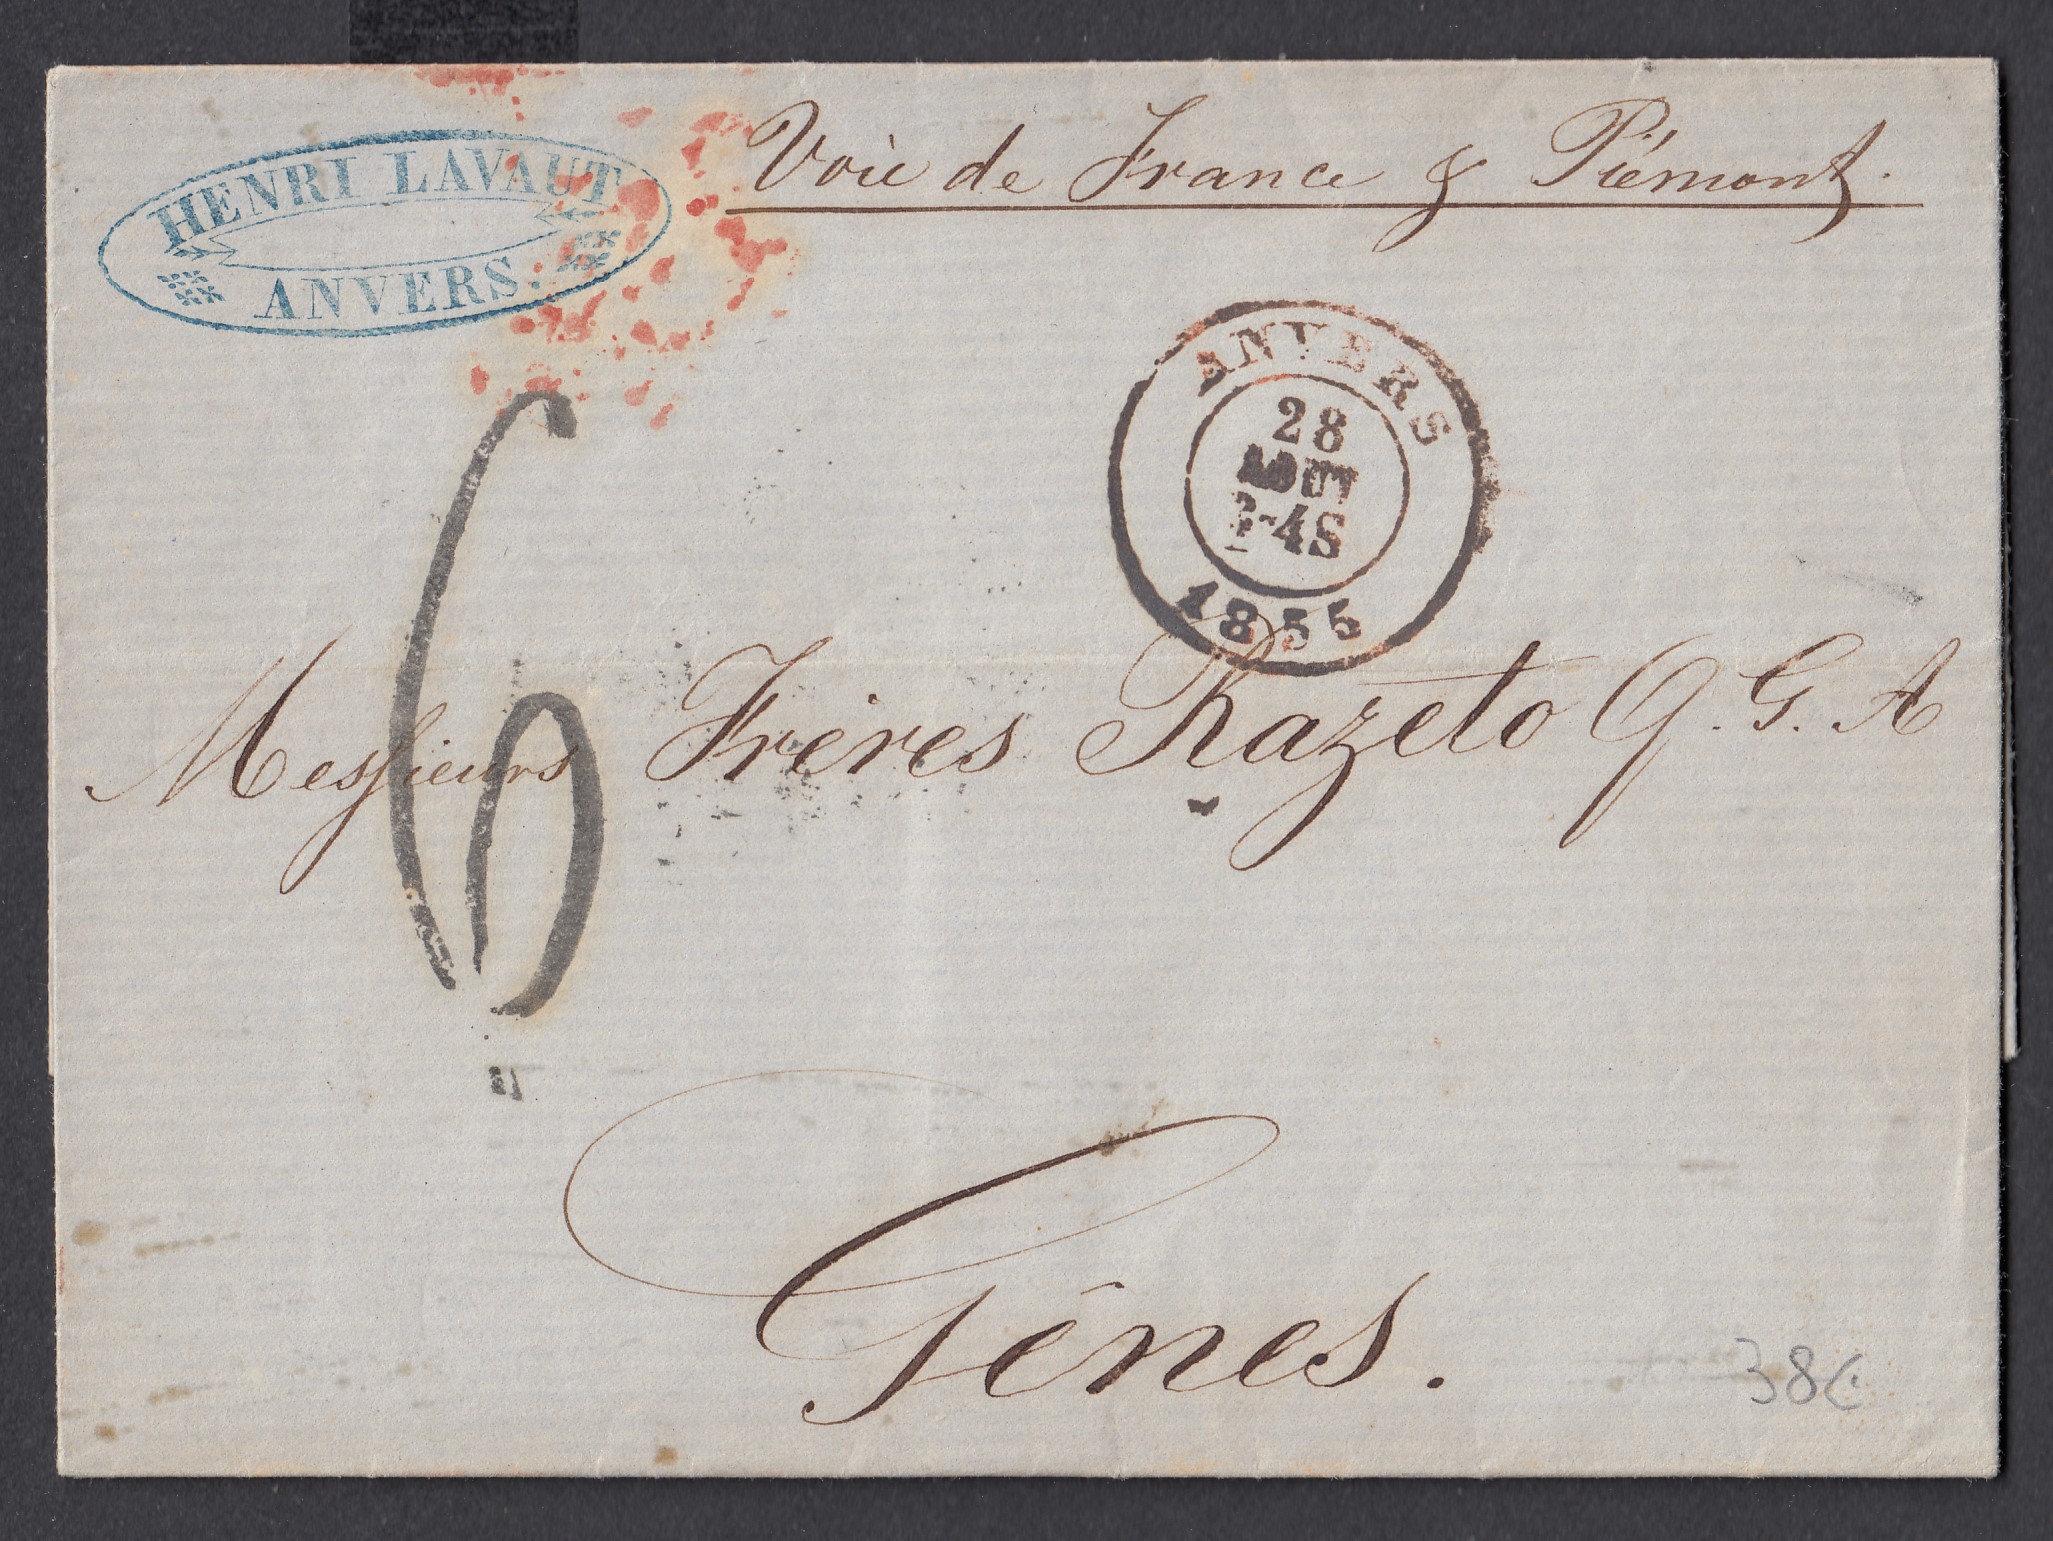 HENRI LAVAUT
ANVERS.
Voie de France & Piémont.
ANVERS
28
AOUT
3-4S
1855
6
Messieurs Frères Razeto q. G. A
Gênes.
38€